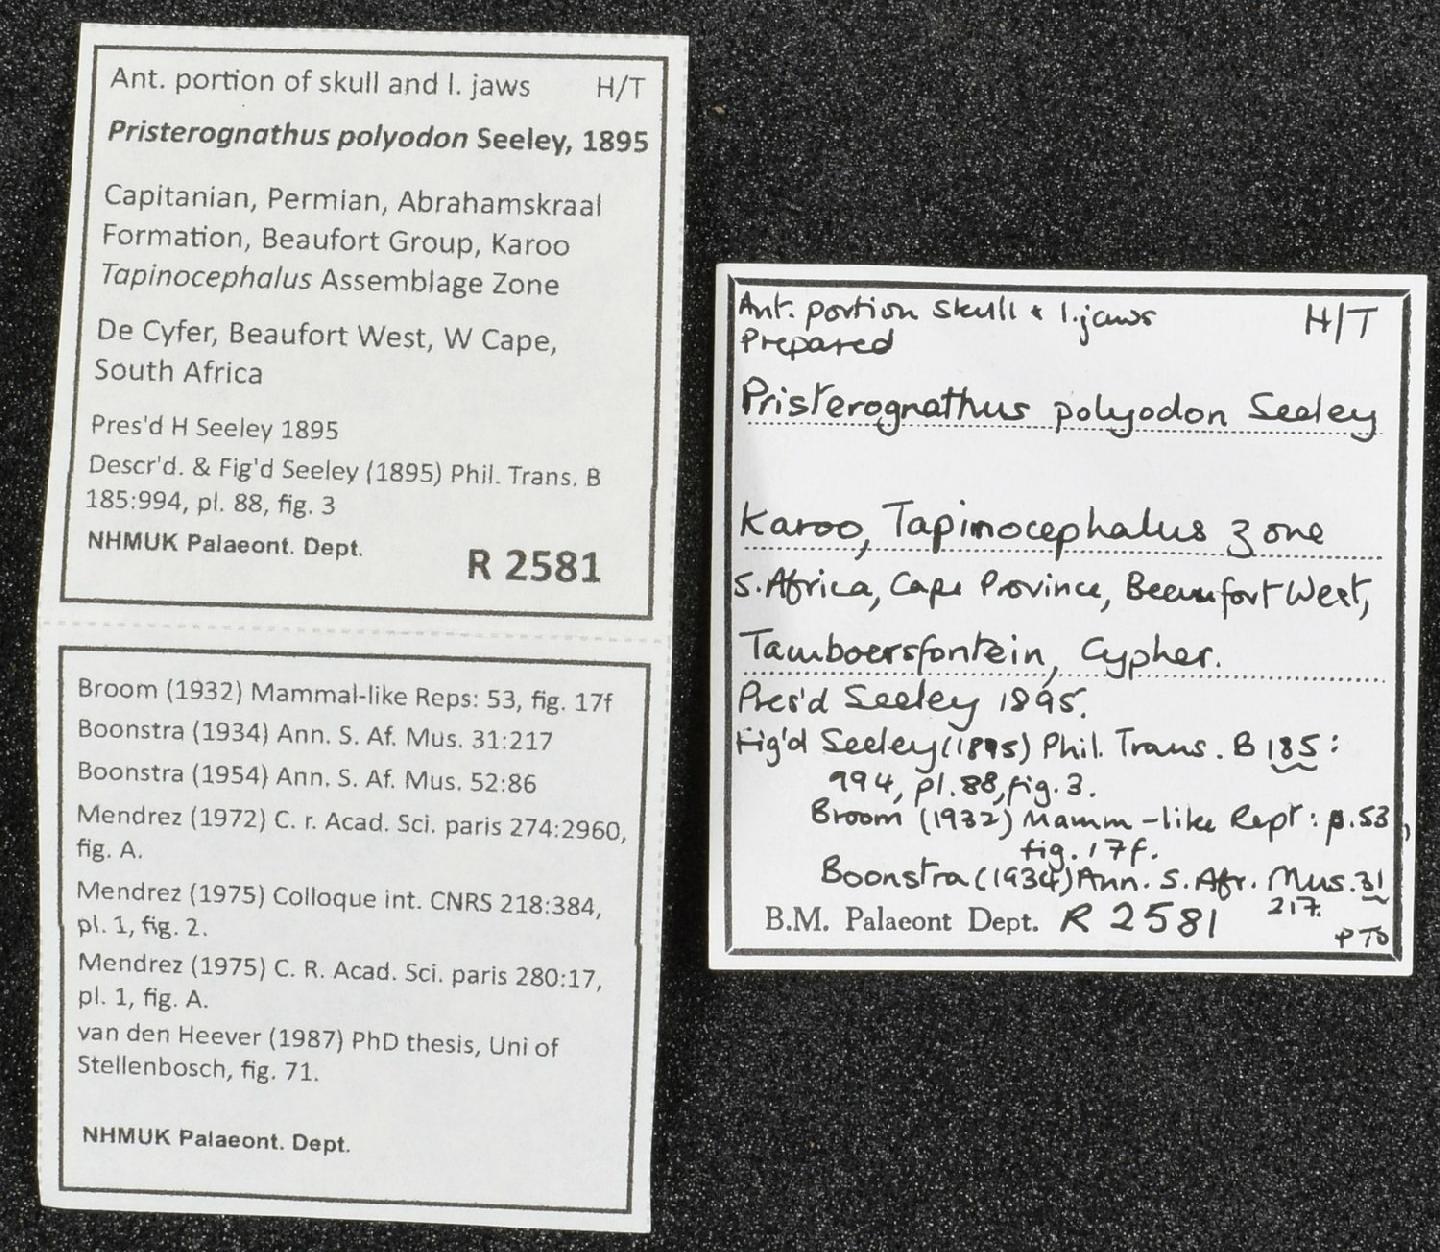 Ant. portion of skull and l. jaws H/T
Pristerognathus polyodon Seeley, 1895
Capitanian, Permian, Abrahamskraal
Formation, Beaufort Group, Karoo
Tapinocephalus Assemblage Zone
De Cyfer, Beaufort West, W Cape,
South Africa
Pres'd H Seeley 1895
Descr'd. & Fig'd Seeley (1895) Phil. Trans. B
185:994, pl. 88, fig. 3
NHMUK Palaeont. Dept. R 2581
Broom (1932) Mammal-like Reps: 53, fig. 17f
Boonstra (1934) Ann. S. Af. Mus. 31:217
Boonstra (1954) Ann. S. Af. Mus. 52:86
Mendrez (1972) C. r. Acad. Sci. paris 274:2960,
fig. A.
Mendrez (1975) Colloque int. CNRS 218:384,
pl. 1, fig. 2.
Mendrez (1975) C. R. Acad. Sci. paris 280:17,
pl. 1, fig. A.
van den Heever (1987) PhD thesis, Uni of
Stellenbosch, fig. 71.
NHMUK Palaeont. Dept.
Ant. portion skull & l. jaws H/T
Prepared
Pristerognathus polyodon Seeley
Karoo, Tapinocephalus Zone
S. Africa, Cape Province, Beaufort West,
Tamboersfontein, Cypher.
Pres'd Seeley 1895.
Fig'd Seeley (1895) Phil. Trans. B 185:
994, pl. 88, fig. 3.
Broom (1932) Mamm-like Rept: p. 53,
fig. 17f.
Boonstra (1934) Ann. S. Afr. Mus. 31
217.
B.M. Palaeont Dept. R 2581
PTO